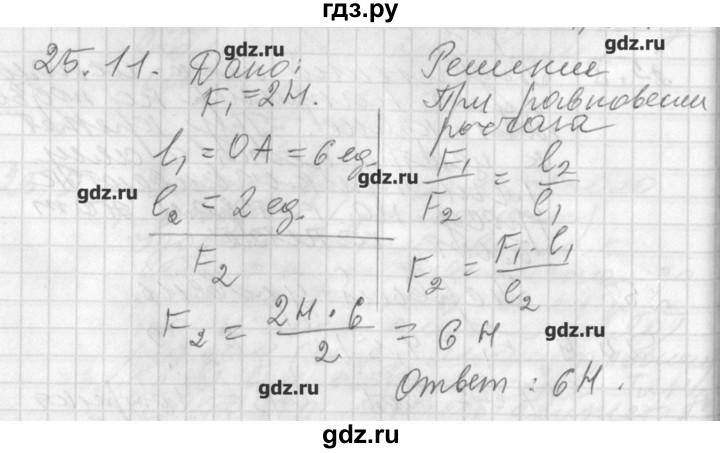 гдз.ру
25.11. Дано:
F₁ = 2Н.
l₁ = OA = 6 ед.
l₂ = 2 ед.
F₂
Решение
При равновесии
рычага
F₁/F₂ = l₂/l₁
F₂ = F₁·l₁/l₂
F₂ = 2Н·6/2 = 6 Н
Ответ: 6Н.
gdz.ru
gdz.ru
gdz.ru
gdz.ru
gdz.ru
gdz.ru
gdz.ru